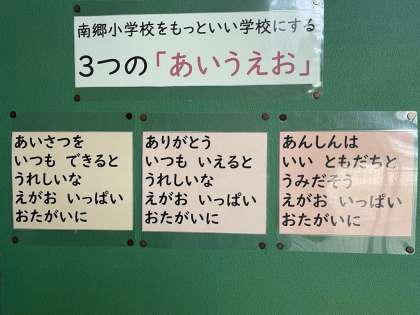 南郷小学校をもっといい学校にする
3つの「あいうえお」
あいさつを
いつも できると
うれしいな
えがお いっぱい
おたがいに
ありがとう
いつも いえると
うれしいな
えがお いっぱい
おたがいに
あんしんは
いい ともだちと
うみだそう
えがお いっぱい
おたがいに